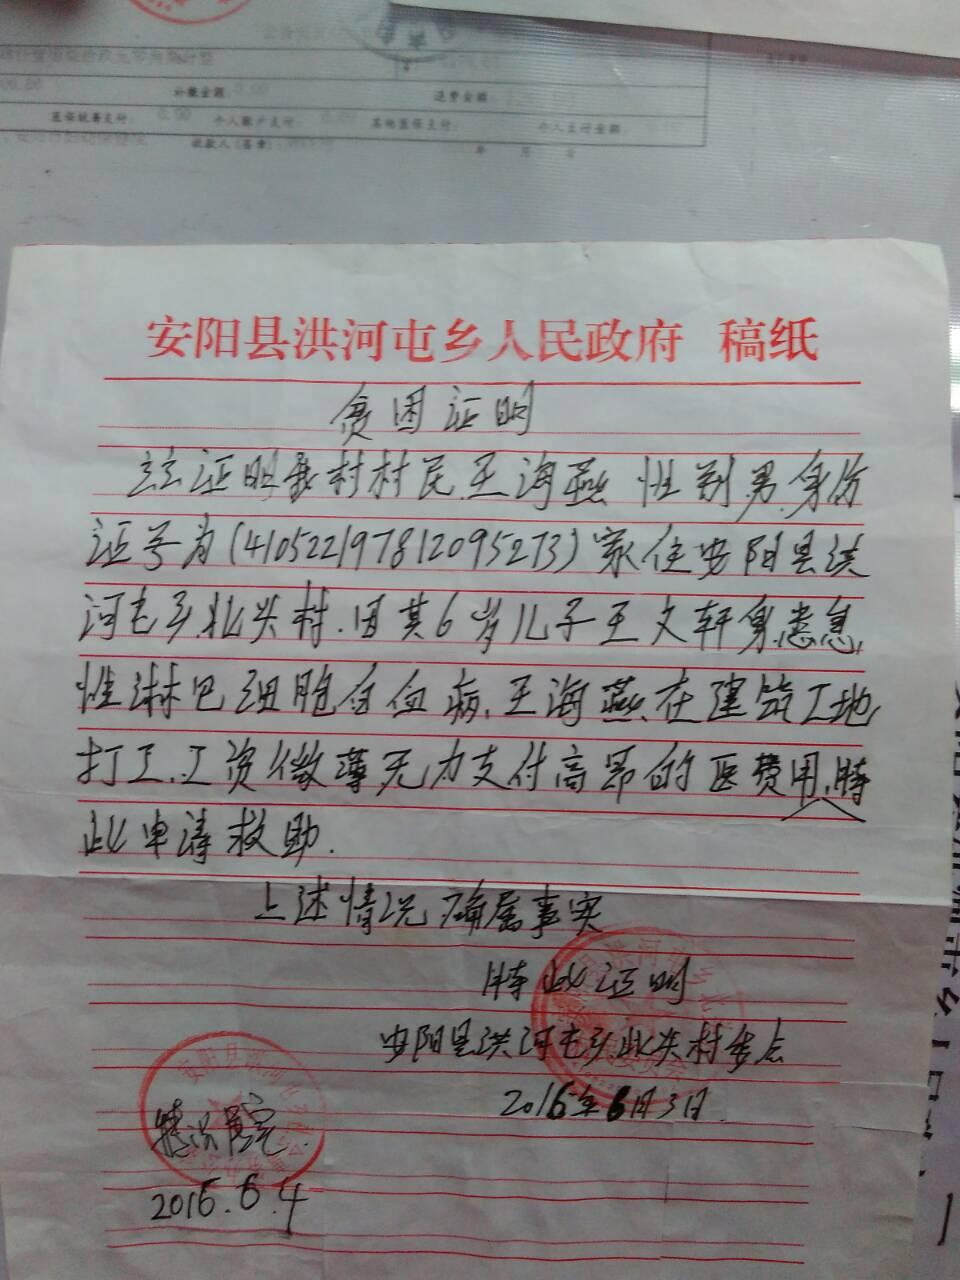 补缴金额: 0.00
退费金额:
医保统筹支付: 0.00 个人账户支付: 0.00 其他医保支付: 个人支付金额:
收款人(签章):
年 月 日
安阳县洪河屯乡人民政府 稿纸
贫困证明
兹证明我村村民王海燕 性别男.身份
证号为(410522197812095273)家住安阳县洪
河屯乡.北尖村.因其6岁儿子王文轩身患急
性淋巴细胞白血病.王海燕在建筑工地
打工.工资微薄无力支付高昂的医费用,特
此申请救助.
上述情况确属事实
特此证明
安阳县洪河屯乡北尖村委会
2016年6月3日
情况属实
2016.6.4